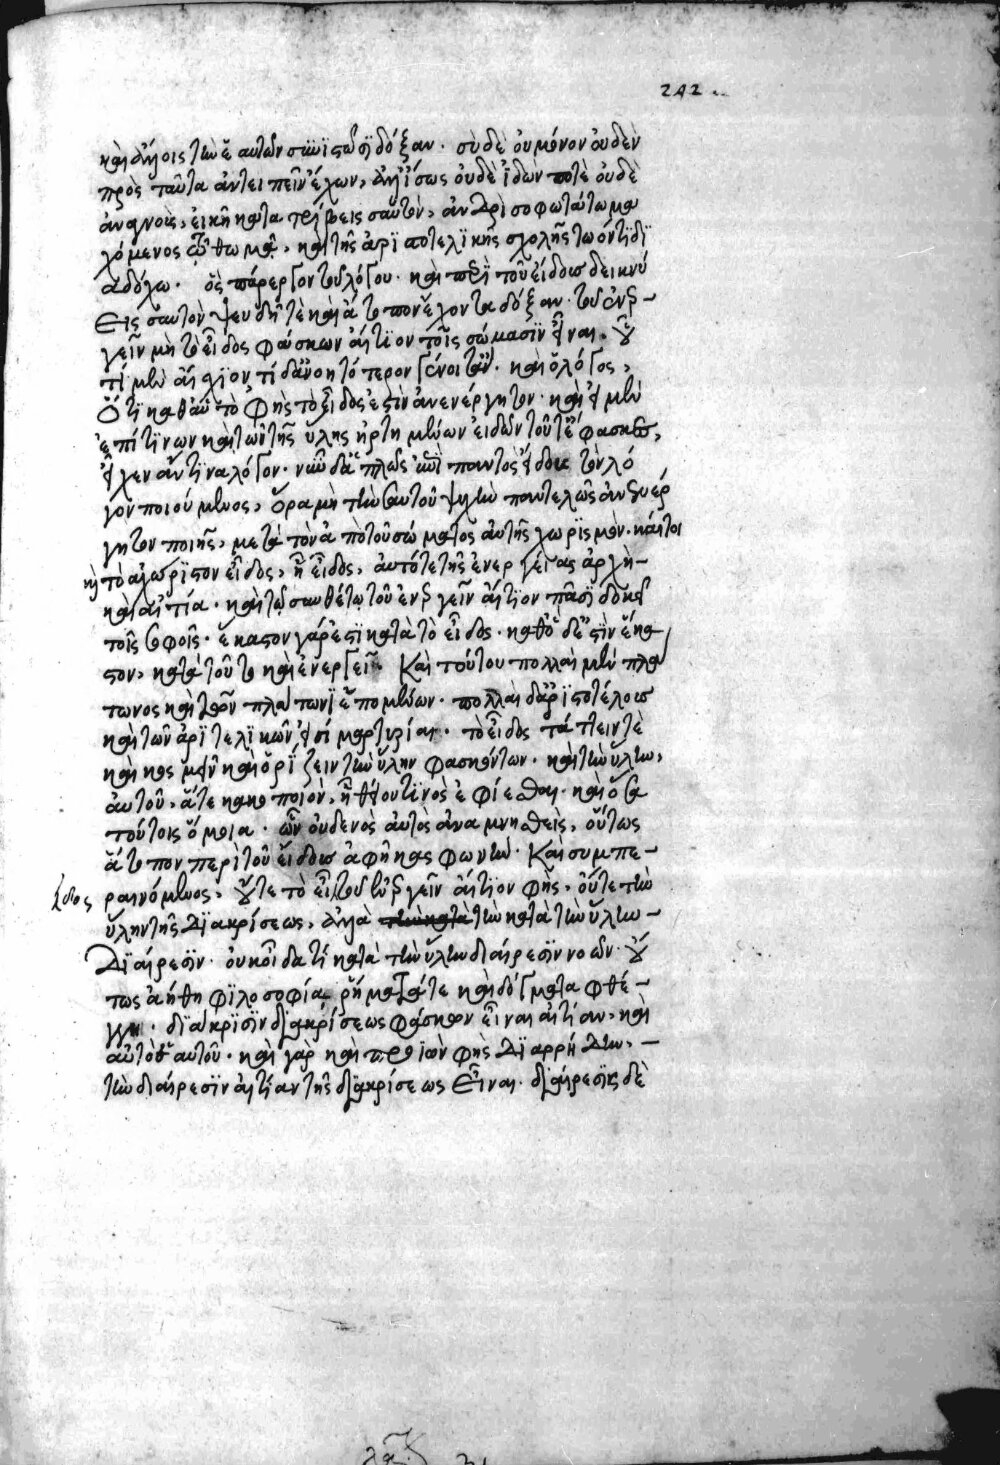 242
καὶ ἄλλοις τὴν ἑαυτῶν δόξαν. σὺ δὲ οὐ μόνον οὐδὲν
πρὸς ταῦτα ἀντειπεῖν ἔχων, ἀλλ' ἴσως οὐδὲ ἰδών ποτὲ οὐδὲ
ἀναγνοὺς, εἰκῆ κατατρίβεις σαυτὸν, ἀνδρὶ σοφωτάτω μα
χόμενος, καὶ τῆς ἀριστοτελικῆς σχολῆς τῶ ὄντι δι
αδόχω. πάρεργον τοῦ λόγου. καὶ περὶ τοῦ εἴδους δεικνύ
εις σαυτὸν ψευδῆ τὲ καὶ ἄτοπον ἔχοντα δόξαν. τοῦ ἐνερ-
γεῖν μὴ τὸ εἶδος φάσκων αἴτιον τοῖς σώμασιν εἶναι. οὗ
τί μὲν αἴσχιον, τί δ' ἀνοητότερον γένοιτ' ἄν. καὶ ὁ λόγος,
ὅτι καθ' αὑτὸ φὴς τὸ εἶδος ἐστὶν ἀνενέργητον. καὶ εἰ μὲν
ἐπί τινων καὶ τῶν τῆς ὕλης ἠρτημένων εἰδῶν τοῦτ' ἔφασκες,
εἶχεν ἄν τινα λόγον. νῦν δ' ἁπλῶς παντὸς εἴδους τὸν λό
γον ποιούμενος, ὅρα μὴ τὴν σαυτοῦ ψυχὴν παντελῶς ἀνενέρ
γητον ποιῆς, μετὰ τὸν ἀπὸ τοῦ σώματος αὐτῆς χωρισμόν. καίτοι
καὶ τὸ ἀχώριστον εἶδος, ἧ εἶδος, αὐτό τε τῆς ἐνεργείας ἀρχὴ-
καὶ αἰτία. καὶ τῶ συνθέτω τοῦ ἐνεργεῖν αἴτιον πᾶσι δοκεῖ
τοῖς σοφοῖς. ἕκαστον γάρ ἐστι κατὰ τὸ εἶδος. καθὸ δέ ἐστιν ἕκα
στον, κατὰ τοῦτο καὶ ἐνεργεῖ. Καὶ τούτου πολλαὶ μὲν πλά
τωνος καὶ τῶν πλάτωνι ἑπομένων. πολλαὶ δ' ἀριστοτέλους
καὶ τῶν ἀριτελικῶν εἰσί μαρτυρίαι. τὸ εἶδος τάττειν τὲ
καὶ κοσμεῖν καὶ ὁρίζειν τὴν ὕλην φασκόντων. καὶ τὴν ὕλην,
αὐτοῦ, ἅτε κακοποιὸν, ἢ θείου τινὸς ἐφίεσθαι. καὶ ὅσα
τούτοις ὅμοια. ὧν οὐδενὸς αὐτὸς ἀναμνησθεὶς, οὕτως
ἄτοπον περὶ τοῦ εἴδους ἀφῆκας φωνήν. Καὶ συμπε-
ραινόμενος, οὔτε τὸ εἶδος τοῦ ἐνεργεῖν αἴτιον φὴς, οὔτε τὴν
εἶδος
ὕλην τῆς διακρίσεως, ἀλλὰ τὴν κατὰ τὴν κατὰ τὴν ὕλην-
διαίρεσιν. οὐκ οἶδα τί κατὰ τὴν ὕλην διαίρεσιν νοῶν. οὕ
τως ἀήθη φιλοσοφία ῥήματά τε καὶ δόγματα φθέ-
γγη. διάκρισιν διακρίσεως φάσκων εἶναι αἰτίαν, καὶ
αὐτὸ ἑαυτοῦ. καὶ γὰρ καὶ προϊὼν φὴς διαρρήδην, -
τὴν διαίρεσιν αἰτίαν τῆς διακρίσεως εἶναι. διαίρεσις δὲ